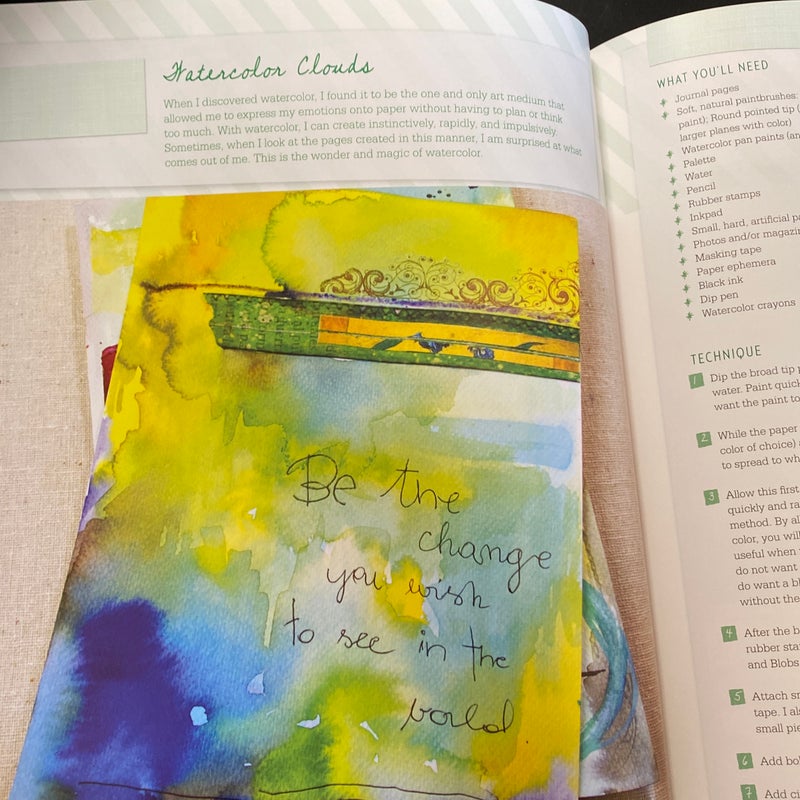 Watercolor Clouds
When I discovered watercolor, I found it to be the one and only art medium that
allowed me to express my emotions onto paper without having to plan or think
too much. With watercolor, I can create instinctively, rapidly, and impulsively.
Sometimes, when I look at the pages created in this manner, I am surprised at what
comes out of me. This is the wonder and magic of watercolor.
Be the
change
you wish
to see in the
world
WHAT YOU'LL NEED
Journal pages
Soft, natural paintbrushes:
paint); Round pointed tip (
larger planes with color)
Watercolor pan paints (an
Palette
Water
Pencil
Rubber stamps
Inkpad
Small, hard, artificial pa
Photos and/or magazin
Masking tape
Paper ephemera
Black ink
Dip pen
Watercolor crayons
TECHNIQUE
1 Dip the broad tip p
water. Paint quick
want the paint to
2 While the paper
color of choice)
to spread to wh
3 Allow this first
quickly and ra
method. By al
color, you will
useful when
do not want
do want a bl
without the
4 After the b
rubber sta
and Blobs
5 Attach sm
tape. I als
small pie
6 Add bol
7 Add ci